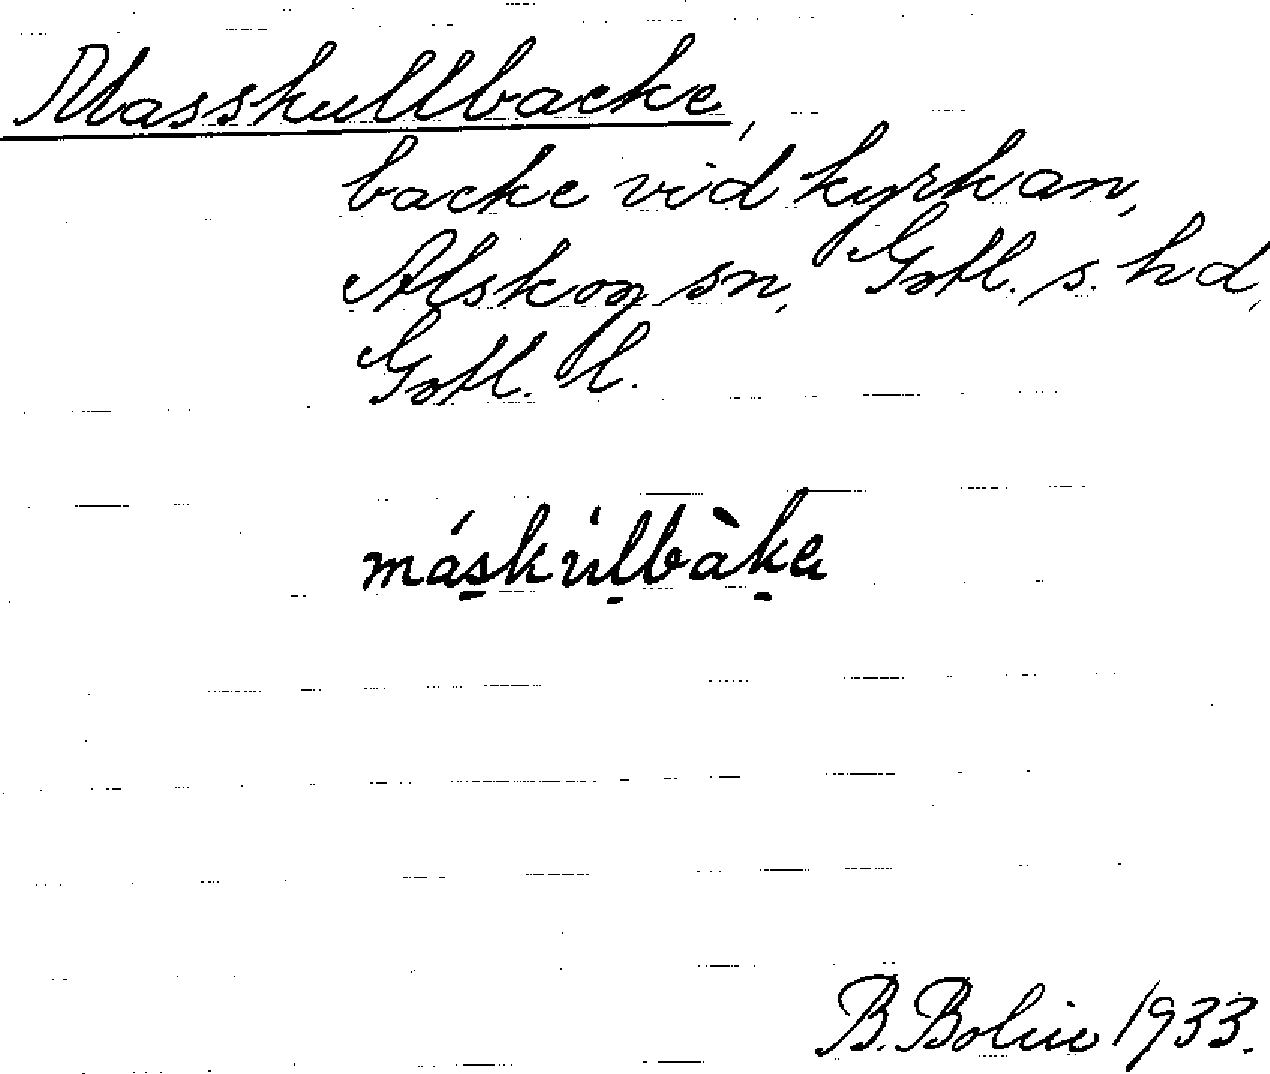 Masskullbacke,
backe vid kyrkan,
Alskog sn, Gotl. s. hd,
Gotl. l.
máskúlbàka
B. Bolin 1933.